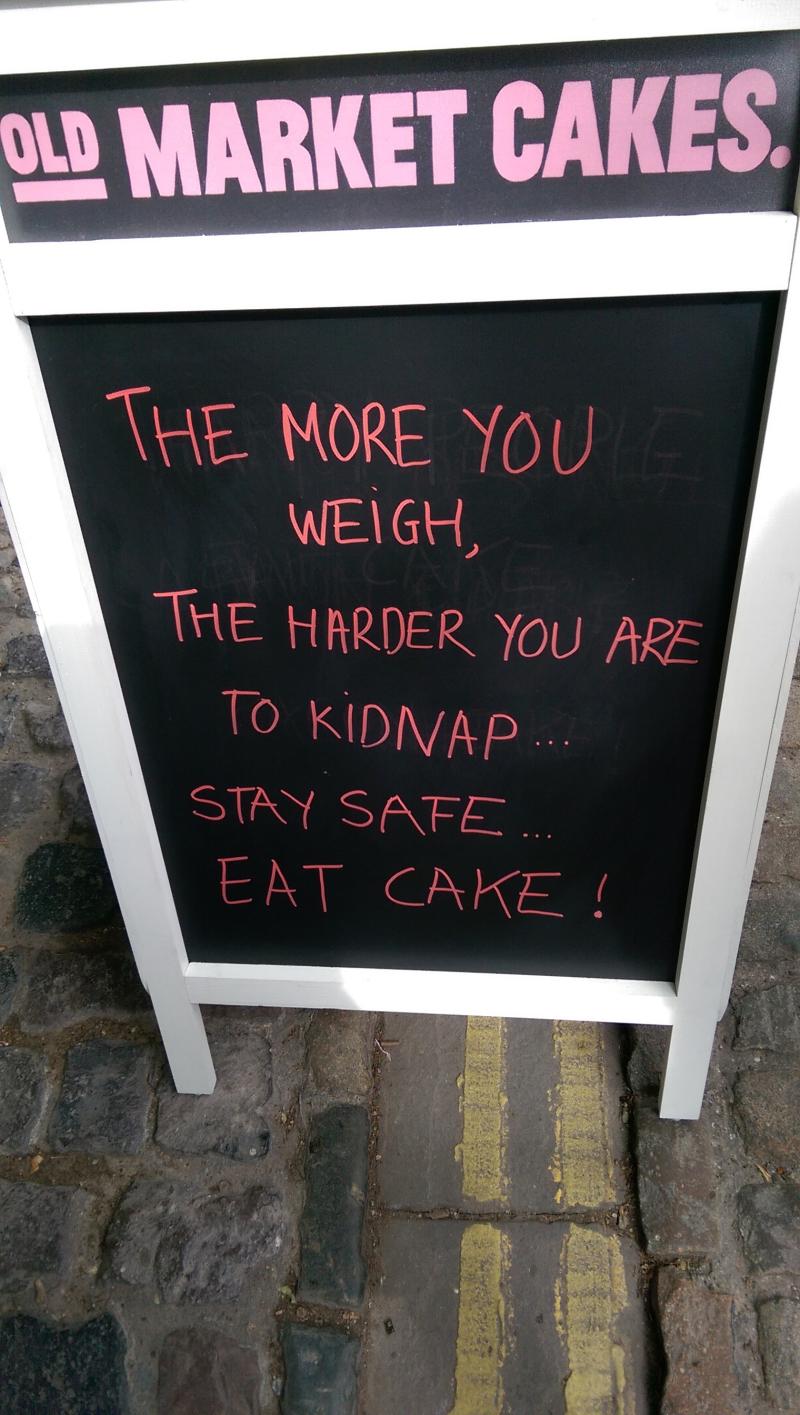 OLD MARKET CAKES.
THE MORE YOU
WEIGH,
THE HARDER YOU ARE
TO KIDNAP...
STAY SAFE...
EAT CAKE!